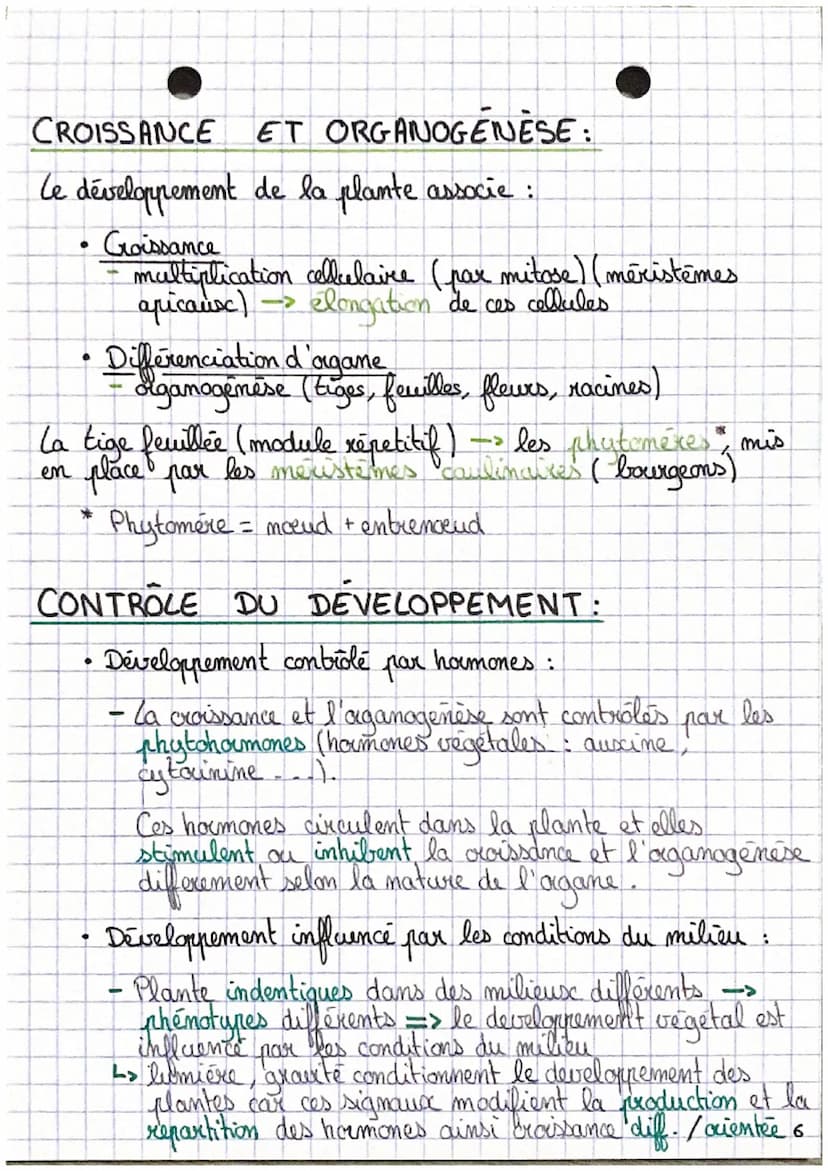 CROISSANCE ET ORGANOGÉNÈSE :
Le développement de la plante associe :
• Croissance
- multiplication cellulaire (par mitose) (méristèmes
apicaux) -> élongation de ces cellules
• Différenciation d'organe
- organogénèse (tiges, feuilles, fleurs, racines)
La tige feuillée (module répetitif) -> les phytomères*, mis
en place par les méristèmes caulinaires (bourgeons)
* Phytomère = nœud + entrenœud
CONTRÔLE DU DÉVELOPPEMENT :
• Développement contrôlé par hormones :
- La croissance et l'organogénèse sont contrôlés par les
phytohormones (hormones végétales : auxine,
cytoinine ....).
Ces hormones circulent dans la plante et elles
stimulent ou inhibent la croissance et l'organogénèse
differement selon la nature de l'organe.
• Développement influencé par les conditions du milieu :
- Plante indentiques dans des milieux différents ->
phénotypes différents => le developpement végétal est
influencé par les conditions du milieu
↳ lumière, gravité conditionnent le developpement des
plantes car ces signaux modifient la production et la
repartition des hormones ainsi croissance diff. / orientée 6